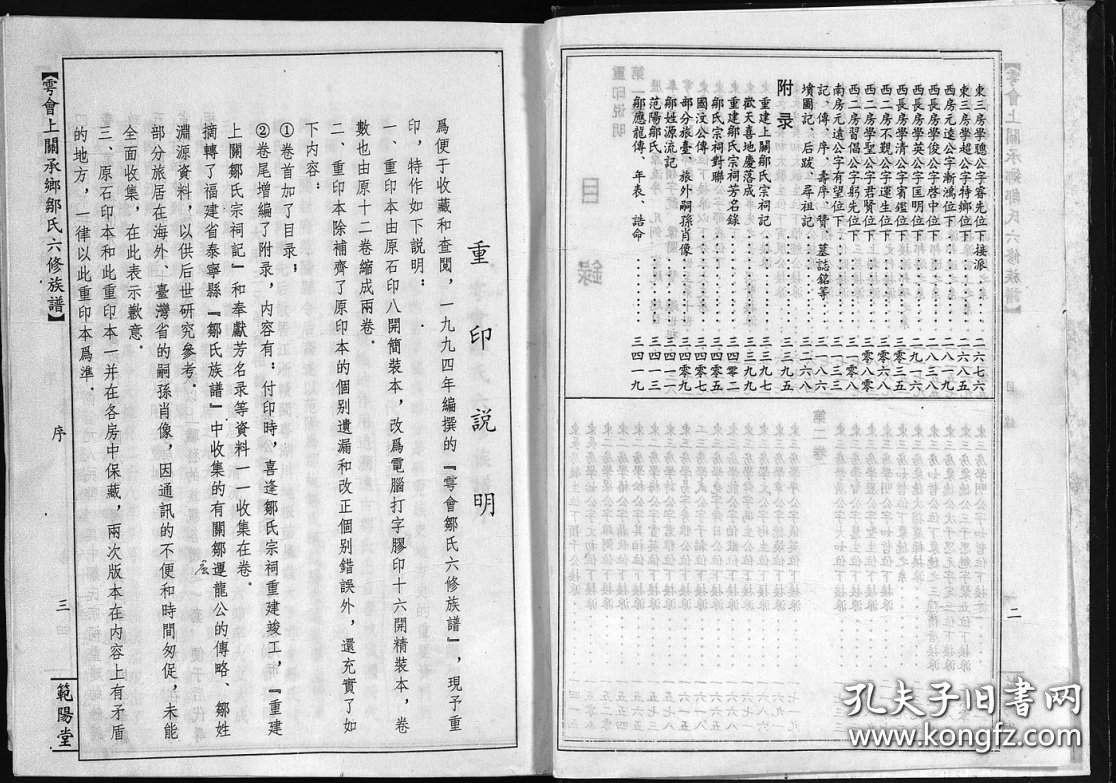 東三房學聰公字睿先位下接派 二六七六
東三房學超公字特卿位下 二六八五
西房元遠公字漸鴻位下 二八一九
西長房學俊公字啓中位下 二八三八
西長房學英公字匡明位下 二九一六
西長房學清公字賓鑑位下 三〇三五
西二房不觀公字運生位下 三〇六八
西二房學聖公字君賢位下 三〇八〇
西二房習倡公字躬先位下 三一〇八
南房元遠公字有望位下 三一三三
記、傳、序、壽序、贊、墓誌銘等 三一八六
墳圖記、后跋、尋祖記 三二六八
附录 三三九五
重建上關鄒氏宗祠記 三三九七
歡天喜地慶落成 三三九九
重建鄒氏宗祠芳名錄 三四〇二
鄒氏宗祠對聯 三四〇七
國汶公傳 三四〇七
部分旅臺、旅外嗣孫肖像 三四〇九
鄒姓源流記 三四一一
范陽鄒氏 三四一三
鄒應龍傳、年表、誥命 三四一九
二
重印説明
爲便于收藏和查閱，一九九四年編撰的『雩會鄒氏六修族譜』，現予重
印，特作如下説明：
一、重印本由原石印八開簡裝本，改爲電腦打字膠印十六開精裝本，卷
數也由原十二卷縮成兩卷．
二、重印本除補齊了原印本的個别遺漏和改正個别錯誤外，還充實了如
下内容：
①卷首加了目录；
②卷尾增編了附录，内容有：付印時，喜逢鄒氏宗祠重建竣工，『重建
上關鄒氏宗祠記』和奉獻芳名录等資料一一收集在卷．
摘轉了福建省泰寧縣『鄒氏族譜』中收集的有關鄒運龍公的傳略、鄒姓
淵源資料，以供后世研究參考．
部分旅居在海外、臺灣省的嗣孫肖像，因通訊的不便和時間匆促，未能
全面收集，在此表示歉意．
三、原石印本和此重印本一并在各房中保藏，兩次版本在内容上有矛盾
的地方，一律以此重印本爲準．
【雩會上關承鄉鄒氏六修族譜】
序
三
範陽堂
孔夫子旧书网
www.kongfz.com